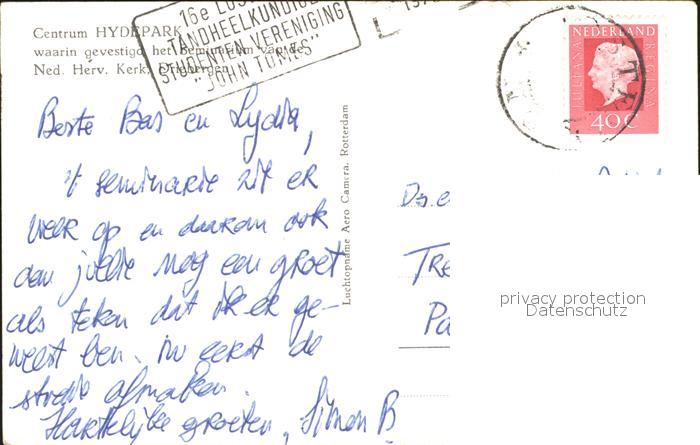 Centrum HYDEPARK
waarin gevestigd het Seminarium van de
Ned. Herv. Kerk, Driebergen
16e LUS
TANDHEELKUNDIGE
STUDENTEN VERENIGING
"JOHN TOMES"
197
NEDERLAND
JULIANA
REGINA
40 C
Beste Bas en Lydia,
't seminarie zit er
weer op en daarom ook
aan jullie nog een groet
als teken dat ik er ge-
weest ben. nu eerst de
studie afmaken.
Hartelijke groeten, Simon B
Luchtopname Aero Camera, Rotterdam
Ds. e
TRE
Pa
privacy protection
Datenschutz